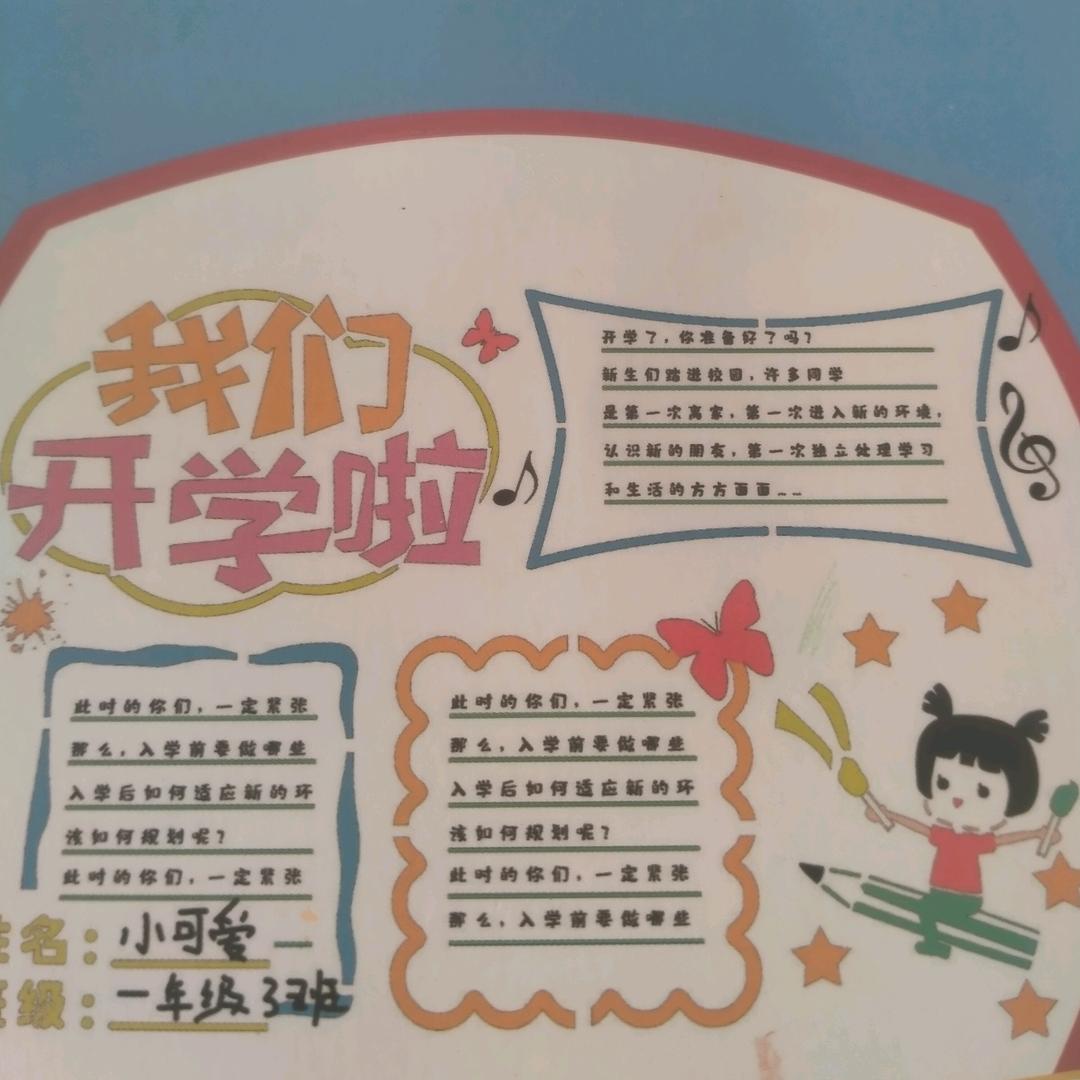 我们
开学啦
开学了,你准备好了吗?
新生们踏进校园,许多同学
是第一次离家,第一次进入新的环境,
认识新的朋友,第一次独立处理学习
和生活的方方面面……
此时的你们,一定紧张
那么,入学前要做哪些
入学后如何适应新的环
该如何规划呢?
此时的你们,一定紧张
此时的你们,一定紧张
那么,入学前要做哪些
入学后如何适应新的环
该如何规划呢?
此时的你们,一定紧张
那么,入学前要做哪些
姓名:小可爱
班级:一年级3班